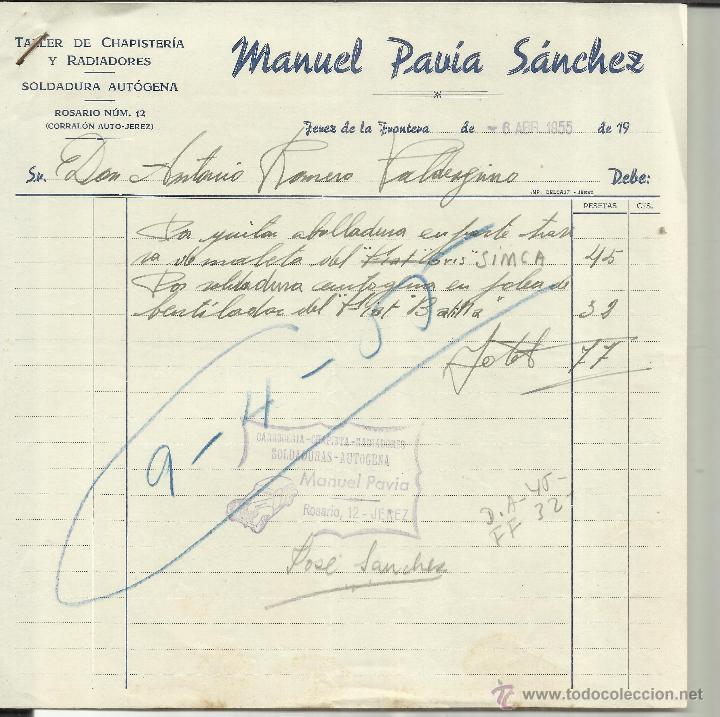 TALLER DE CHAPISTERÍA
Y RADIADORES
SOLDADURA AUTÓGENA
ROSARIO NÚM. 12
(CORRALÓN AUTO-JEREZ)
Manuel Pavía Sánchez
Jerez de la Frontera de 6 ABR 1955 de 19
Sr. Don Antonio Romero Valdespino Debe:
IMP. - Jerez
PESETAS CTS.
Por quitar abolladura en parte tras
de maleta del "Fiat" "Gris" SIMCA 45
Por soldadura en polea de
bentilador del "Fiat" 32
Total 77
9-4-55
CARROCERIA-CHAPISTA-RADIADORES
SOLDADURAS-AUTOGENA
Manuel Pavia
Rosario, 12 - JEREZ
D.A-45-
FF 32-
José Sanchez
www.todocoleccion.net